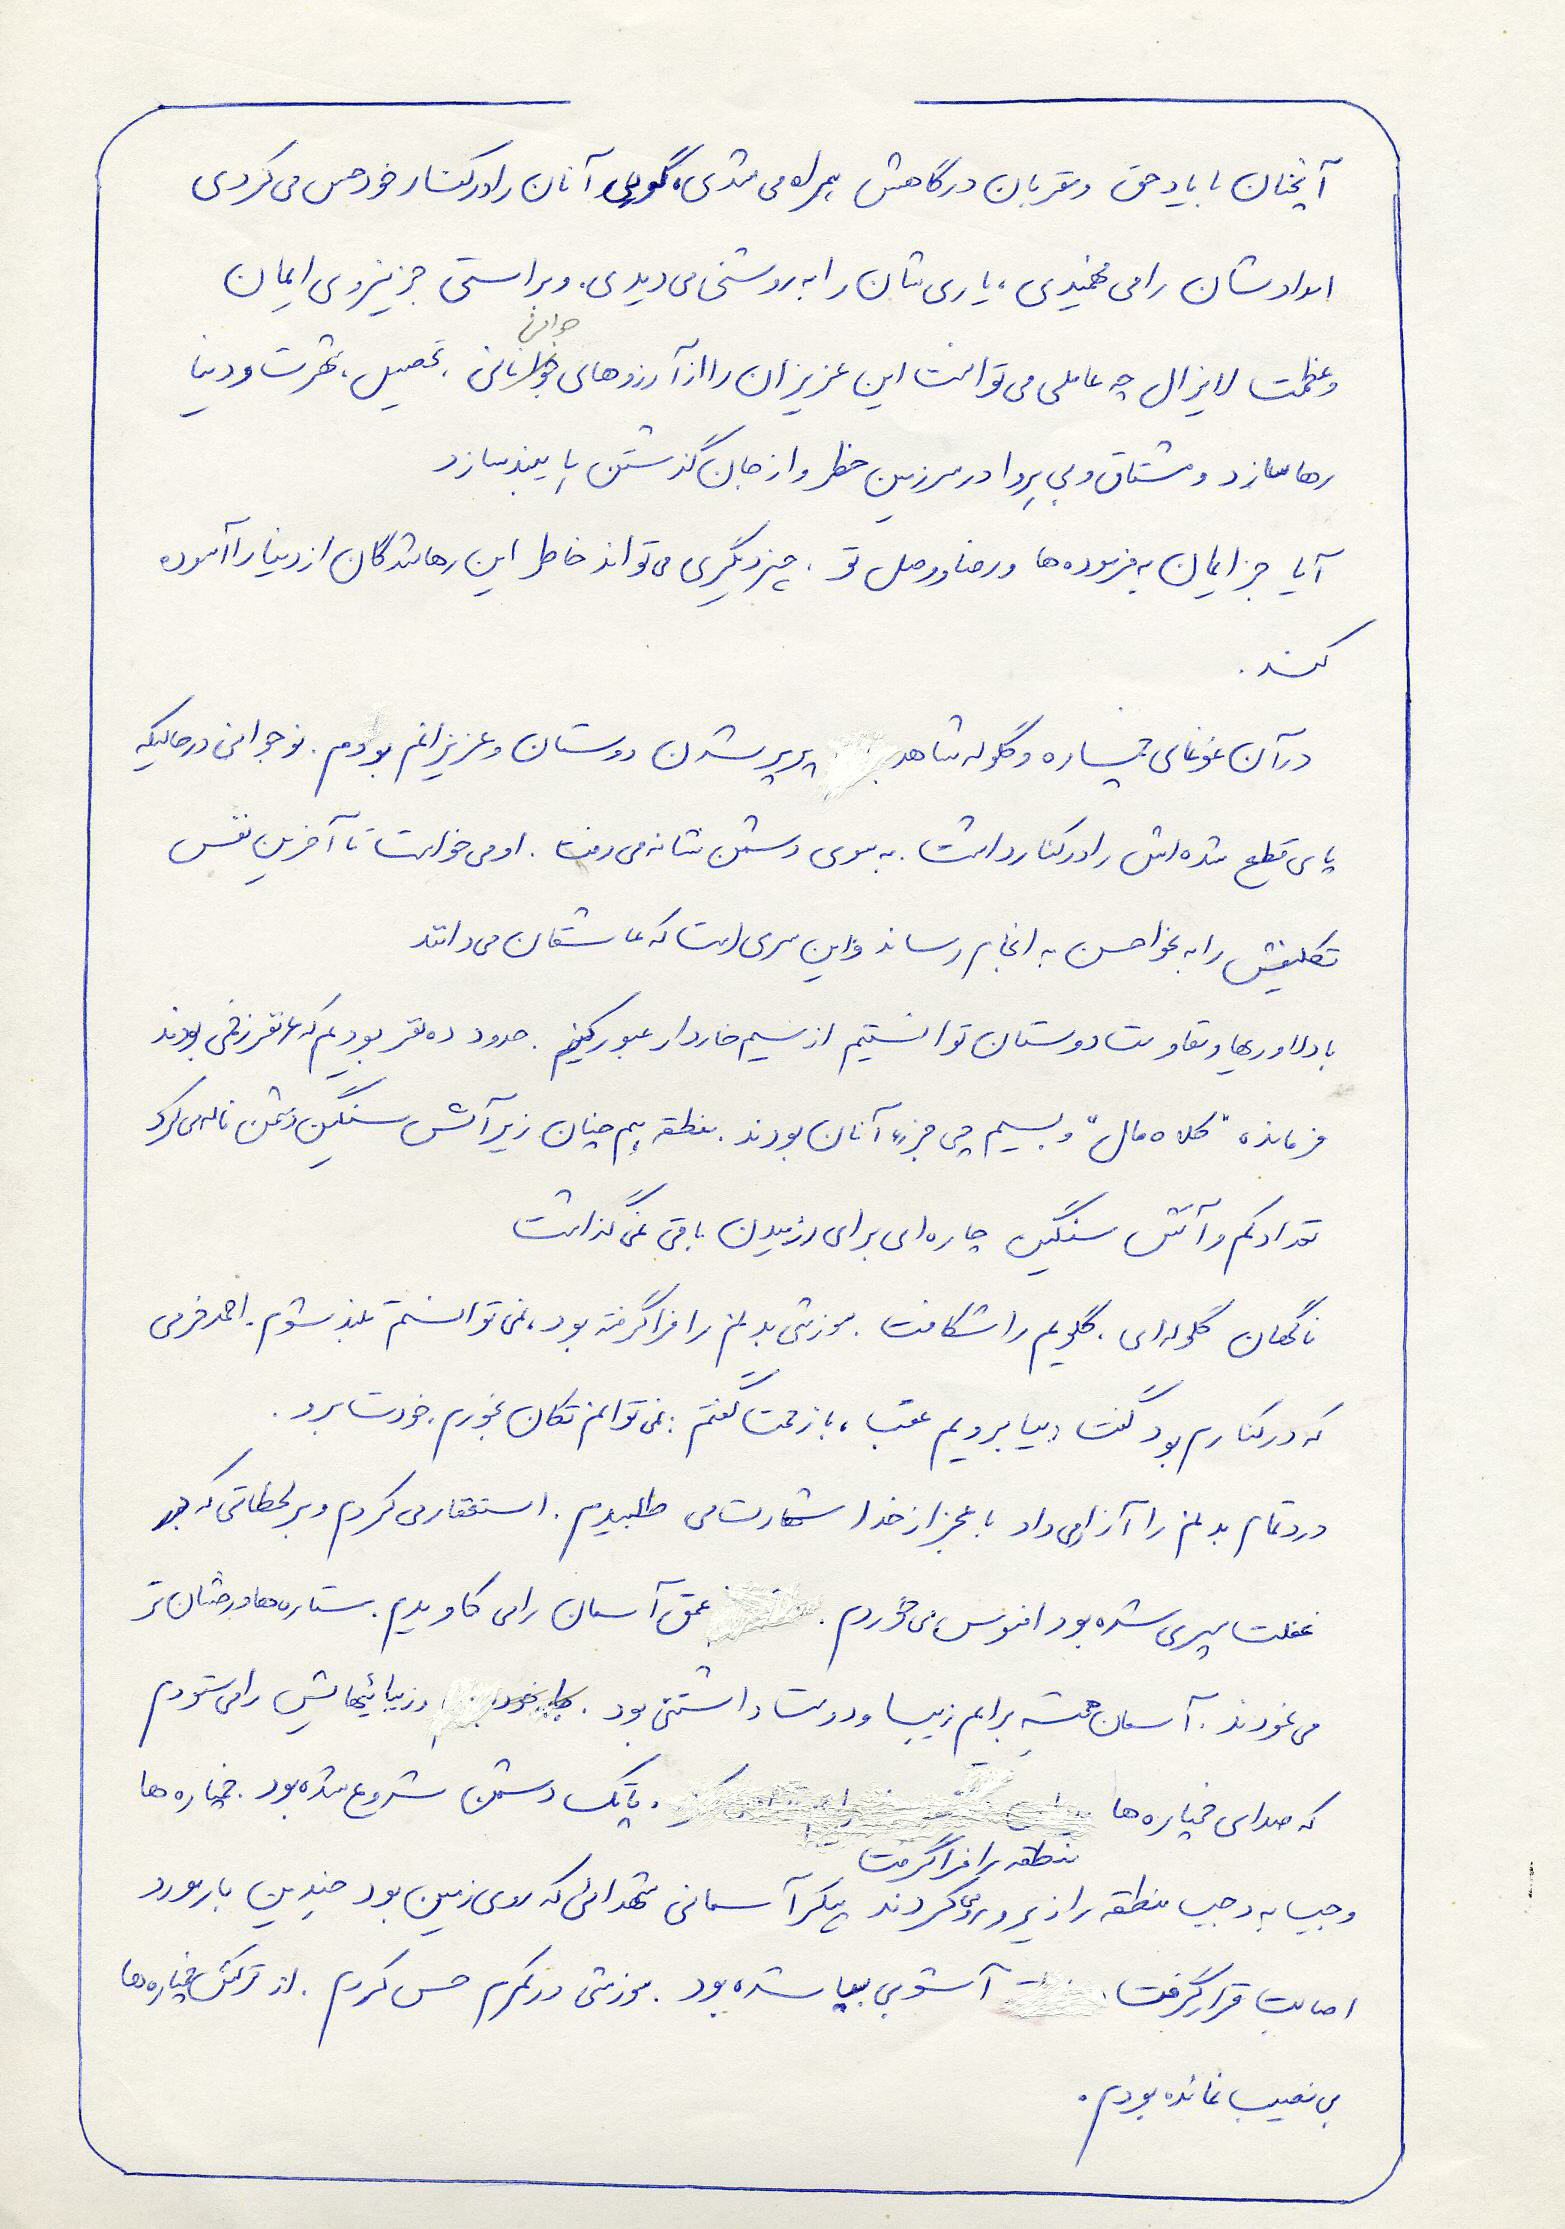 آنچنان با یاد حق و مقربان درگاهش همراه می شدی، گویی آنان را در کنار خود حس می کردی
امدادشان را می فهمیدی، یاری شان را به روشنی می دیدی. و براستی جز نیروی ایمان
و عظمت لایزال چه عاملی می توانست این عزیزان را از آرزوهای جوانی، تحصیل، شهرت و دنیا
رها سازد و مشتاق و بی پروا در سرزمین خطر و از جان گذشتن پایبند سازد
آیا جز ایمان به فرموده ها و رضا و وصل تو، چیز دیگری می تواند خاطر این رها شدگان از دنیا را آسوده
کند.
در آن غوغای خمپاره و گلوله شاهد پرپر شدن دوستان و عزیزانم بودم. نوجوانی در حالیکه
پای قطع شده اش را در کنار داشت. به سوی دشمن نشانه می رفت. او می خواست تا آخرین نفس
تکلیفش را به نحو احسن به انجام رساند و این سری است که عاشقان می دانند
با دلاوریها و مقاومت دوستان توانستیم از سیم خاردار عبور کنیم. حدود ده نفر بودیم که ۶ نفر زخمی بودند
فرمانده "کلاه مال" و بیسیم چی جزء آنان بودند. منطقه هم چنان زیر آتش سنگین دشمن ناله می کرد
تعداد کم و آتش سنگین چاره ای برای رزمیدن باقی نمی گذاشت
ناگهان گلوله ای، گلویم را شکافت. سوزشی بدنم را فرا گرفته بود، نمی توانستم بلند شوم. احمد خرمی
که در کنارم بود گفت: بیا برویم عقب، با زحمت گفتم: نمی توانم تکان بخورم. خودت برو.
درد تمام بدنم را آزار می داد با عجز از خدا شهادت می طلبیدم. استغفار می کردم و بر لحظاتی که به
غفلت سپری شده بود افسوس می خوردم. عمق آسمان را می کاویدم. ستاره ها درخشان تر
می نمودند. آسمان همیشه برایم زیبا و دوست داشتنی بود. و زیبائیهایش را می ستودم
که صدای خمپاره ها منطقه را فرا گرفت. پاتک دشمن شروع شده بود. خمپاره ها
وجب به وجب منطقه را زیر و رو می کردند پیکر آسمانی شهدائی که روی زمین بود چندین بار مورد
اصابت قرار گرفت. آشوبی بپا شده بود. سوزشی در کمرم حس کردم. از ترکش خمپاره ها
بی نصیب نمانده بودم.